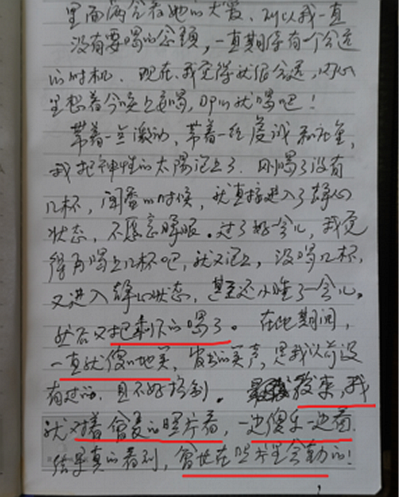 里面两个在她的大爱、所以我一直
没有要喝的念头，一直期待有一个合适
的时机．现在，我觉得就很合适，内心
里想着今晚上要喝，那就喝吧！
带着一点激动，带着一丝虔诚和
我把神性的太阳泡上了．刚喝了没有
几杯，闻香的时候，就直接进入了静心
状态，不愿意睁眼．过了好一会儿，我觉
得再喝上几杯吧，就又泡上，没喝几杯，
又进入静心状态，甚至还小睡了一会儿。
然后又把剩下的喝了。在此期间，
一直就傻傻地笑，发出的笑声，是我以前没
有过的，且不好控制。后来，我
就对着曾美的照片看，一边傻乐一边看．
结果真的看到，曾 在照片里会动的！